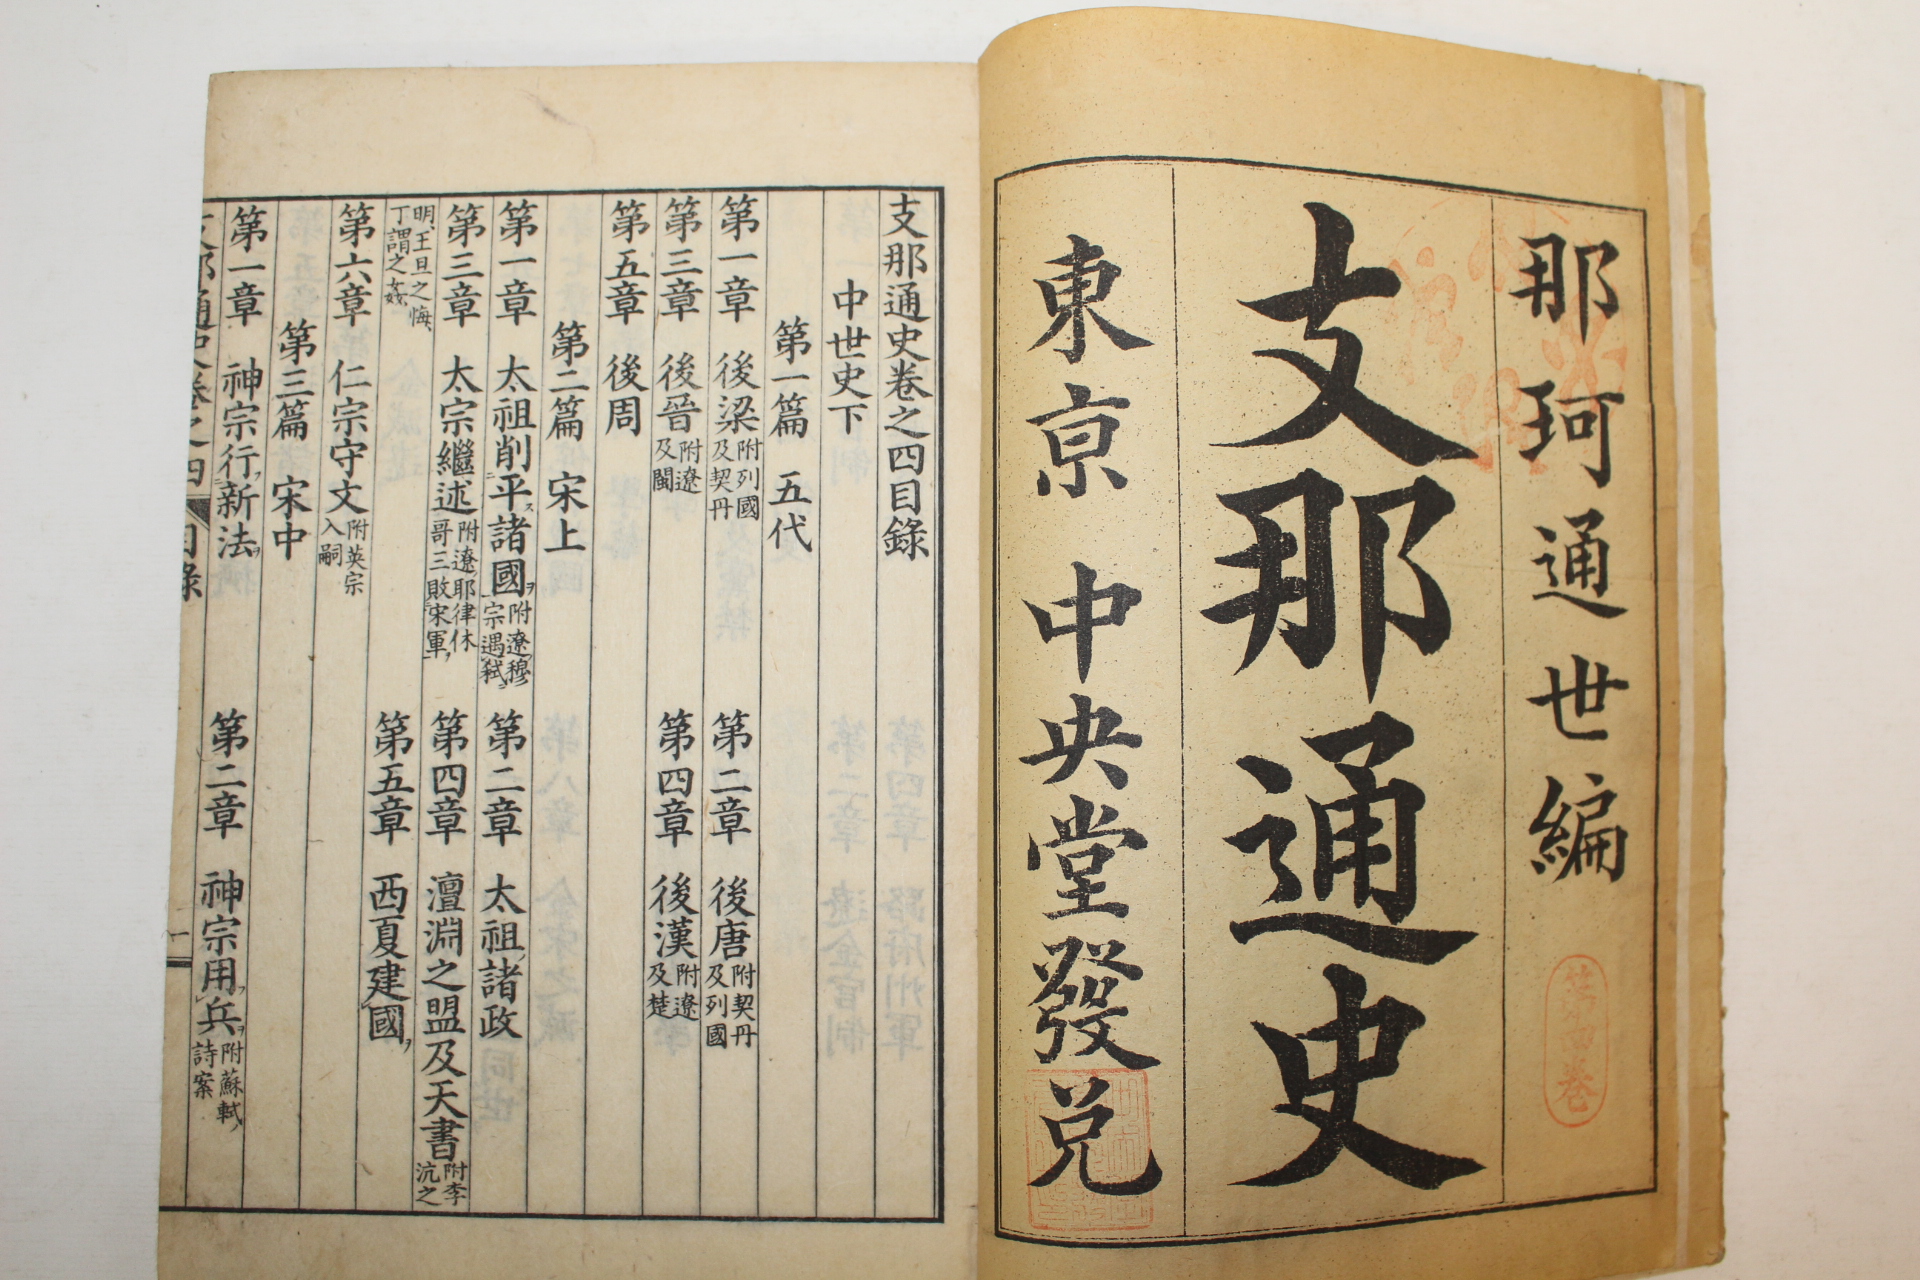 那珂通世編
第四卷
支那通史
東京 中央堂發兌
支那通史卷之四目錄
中世史下
第一篇 五代
第一章 後梁 附列國及契丹 第二章 後唐 附契丹及列國
第三章 後晉 附遼及閩 第四章 後漢 附遼及楚
第五章 後周
第二篇 宋上
第一章 太祖削平諸國 附遼穆宗遇弒 第二章 太祖諸政
第三章 太宗繼述 附遼耶律休哥三敗宋軍 第四章 澶淵之盟及天書 附李沆之
明、王旦之悔、丁謂之姦、 第五章 西夏建國
第六章 仁宗守文 附英宗入嗣
第三篇 宋中
第一章 神宗行新法 第二章 神宗用兵 附蘇軾詩案
支那通史卷之四 目錄 一